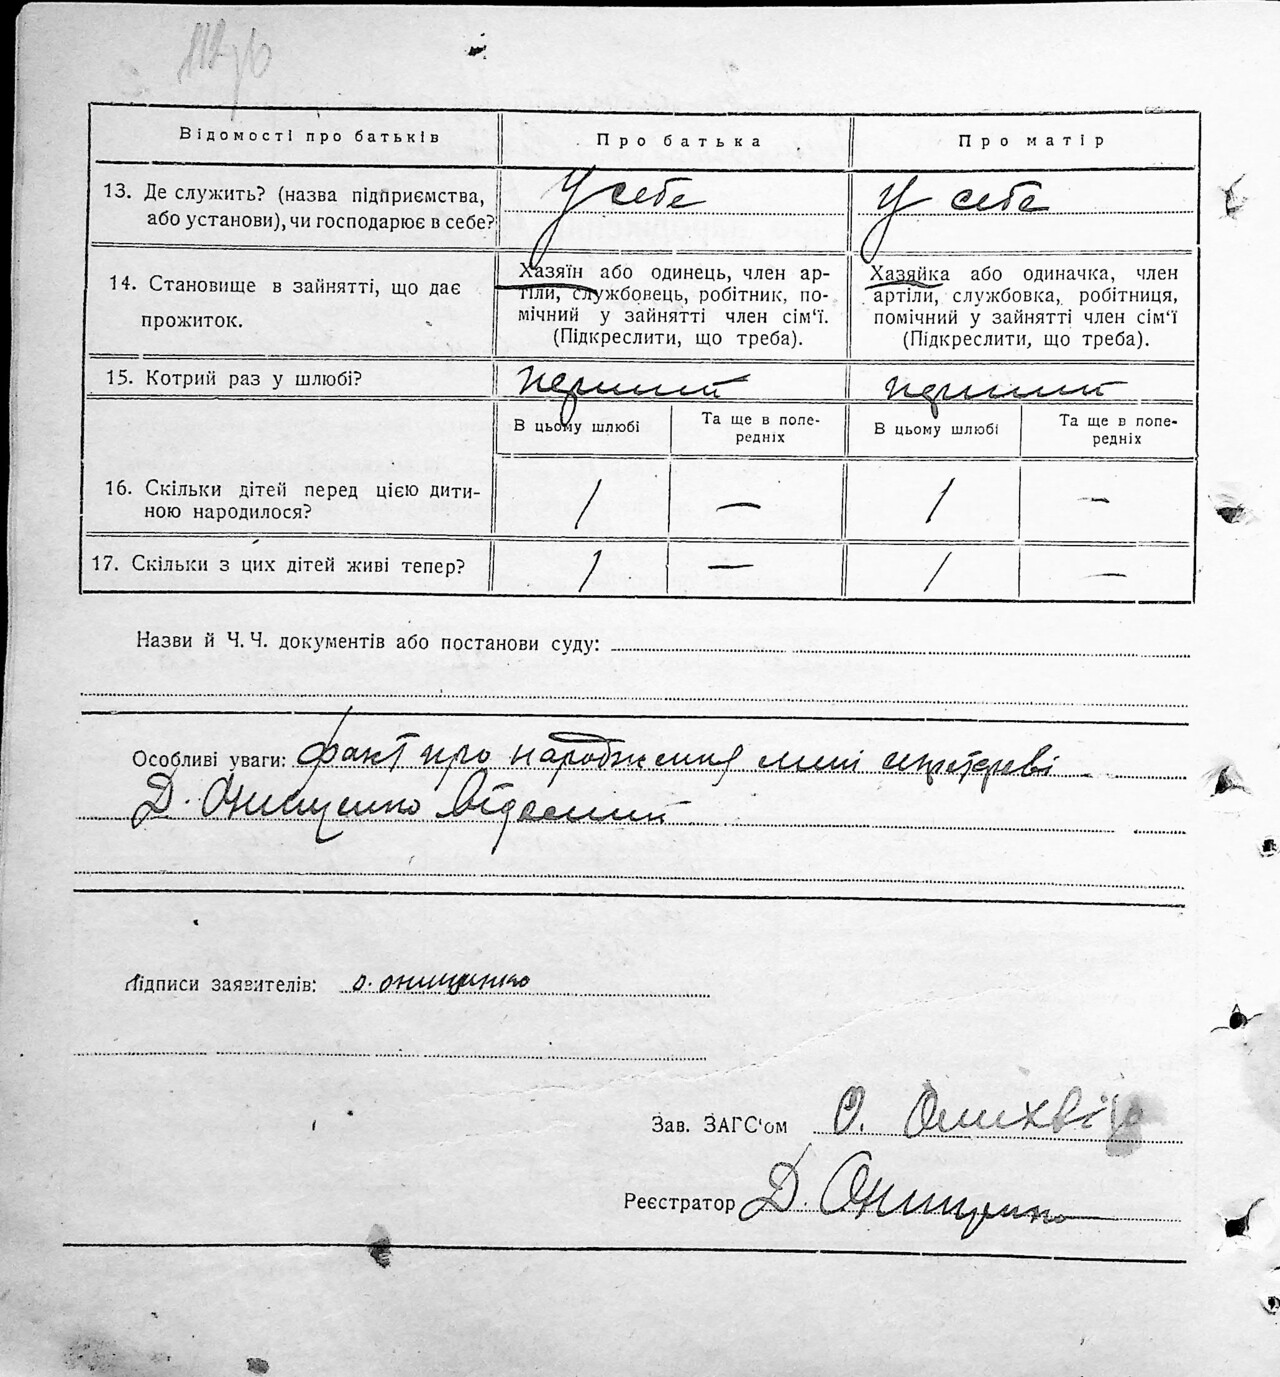 Відомості про батьків
Про батька
Про матір
13. Де служить? (назва підприємства,
або установи), чи господарює в себе?
У себе
У себе
14. Становище в зайнятті, що дає
прожиток.
Хазяїн або одинець, член ар-
тіли, службовець, робітник, по-
мічний у зайнятті член сім‘ї.
(Підкреслити, що треба).
Хазяйка або одиначка, член
артіли, службовка, робітниця,
помічний у зайнятті член сім‘ї
(Підкреслити, що треба).
15. Котрий раз у шлюбі?
перший
перший
В цьому шлюбі
Та ще в попе-
редніх
В цьому шлюбі
Та ще в попе-
редніх
16. Скільки дітей перед цією дити-
ною народилося?
1
—
1
—
17. Скільки з цих дітей живі тепер?
1
—
1
—
Назви й Ч. Ч. документів або постанови суду:
Особливі уваги: факт про народження мині секретареві
Д. Онищенко відомий
Підписи заявителів: О. Онищенко
Зав. ЗАГС‘ом О.
Реєстратор Д. Онищенко